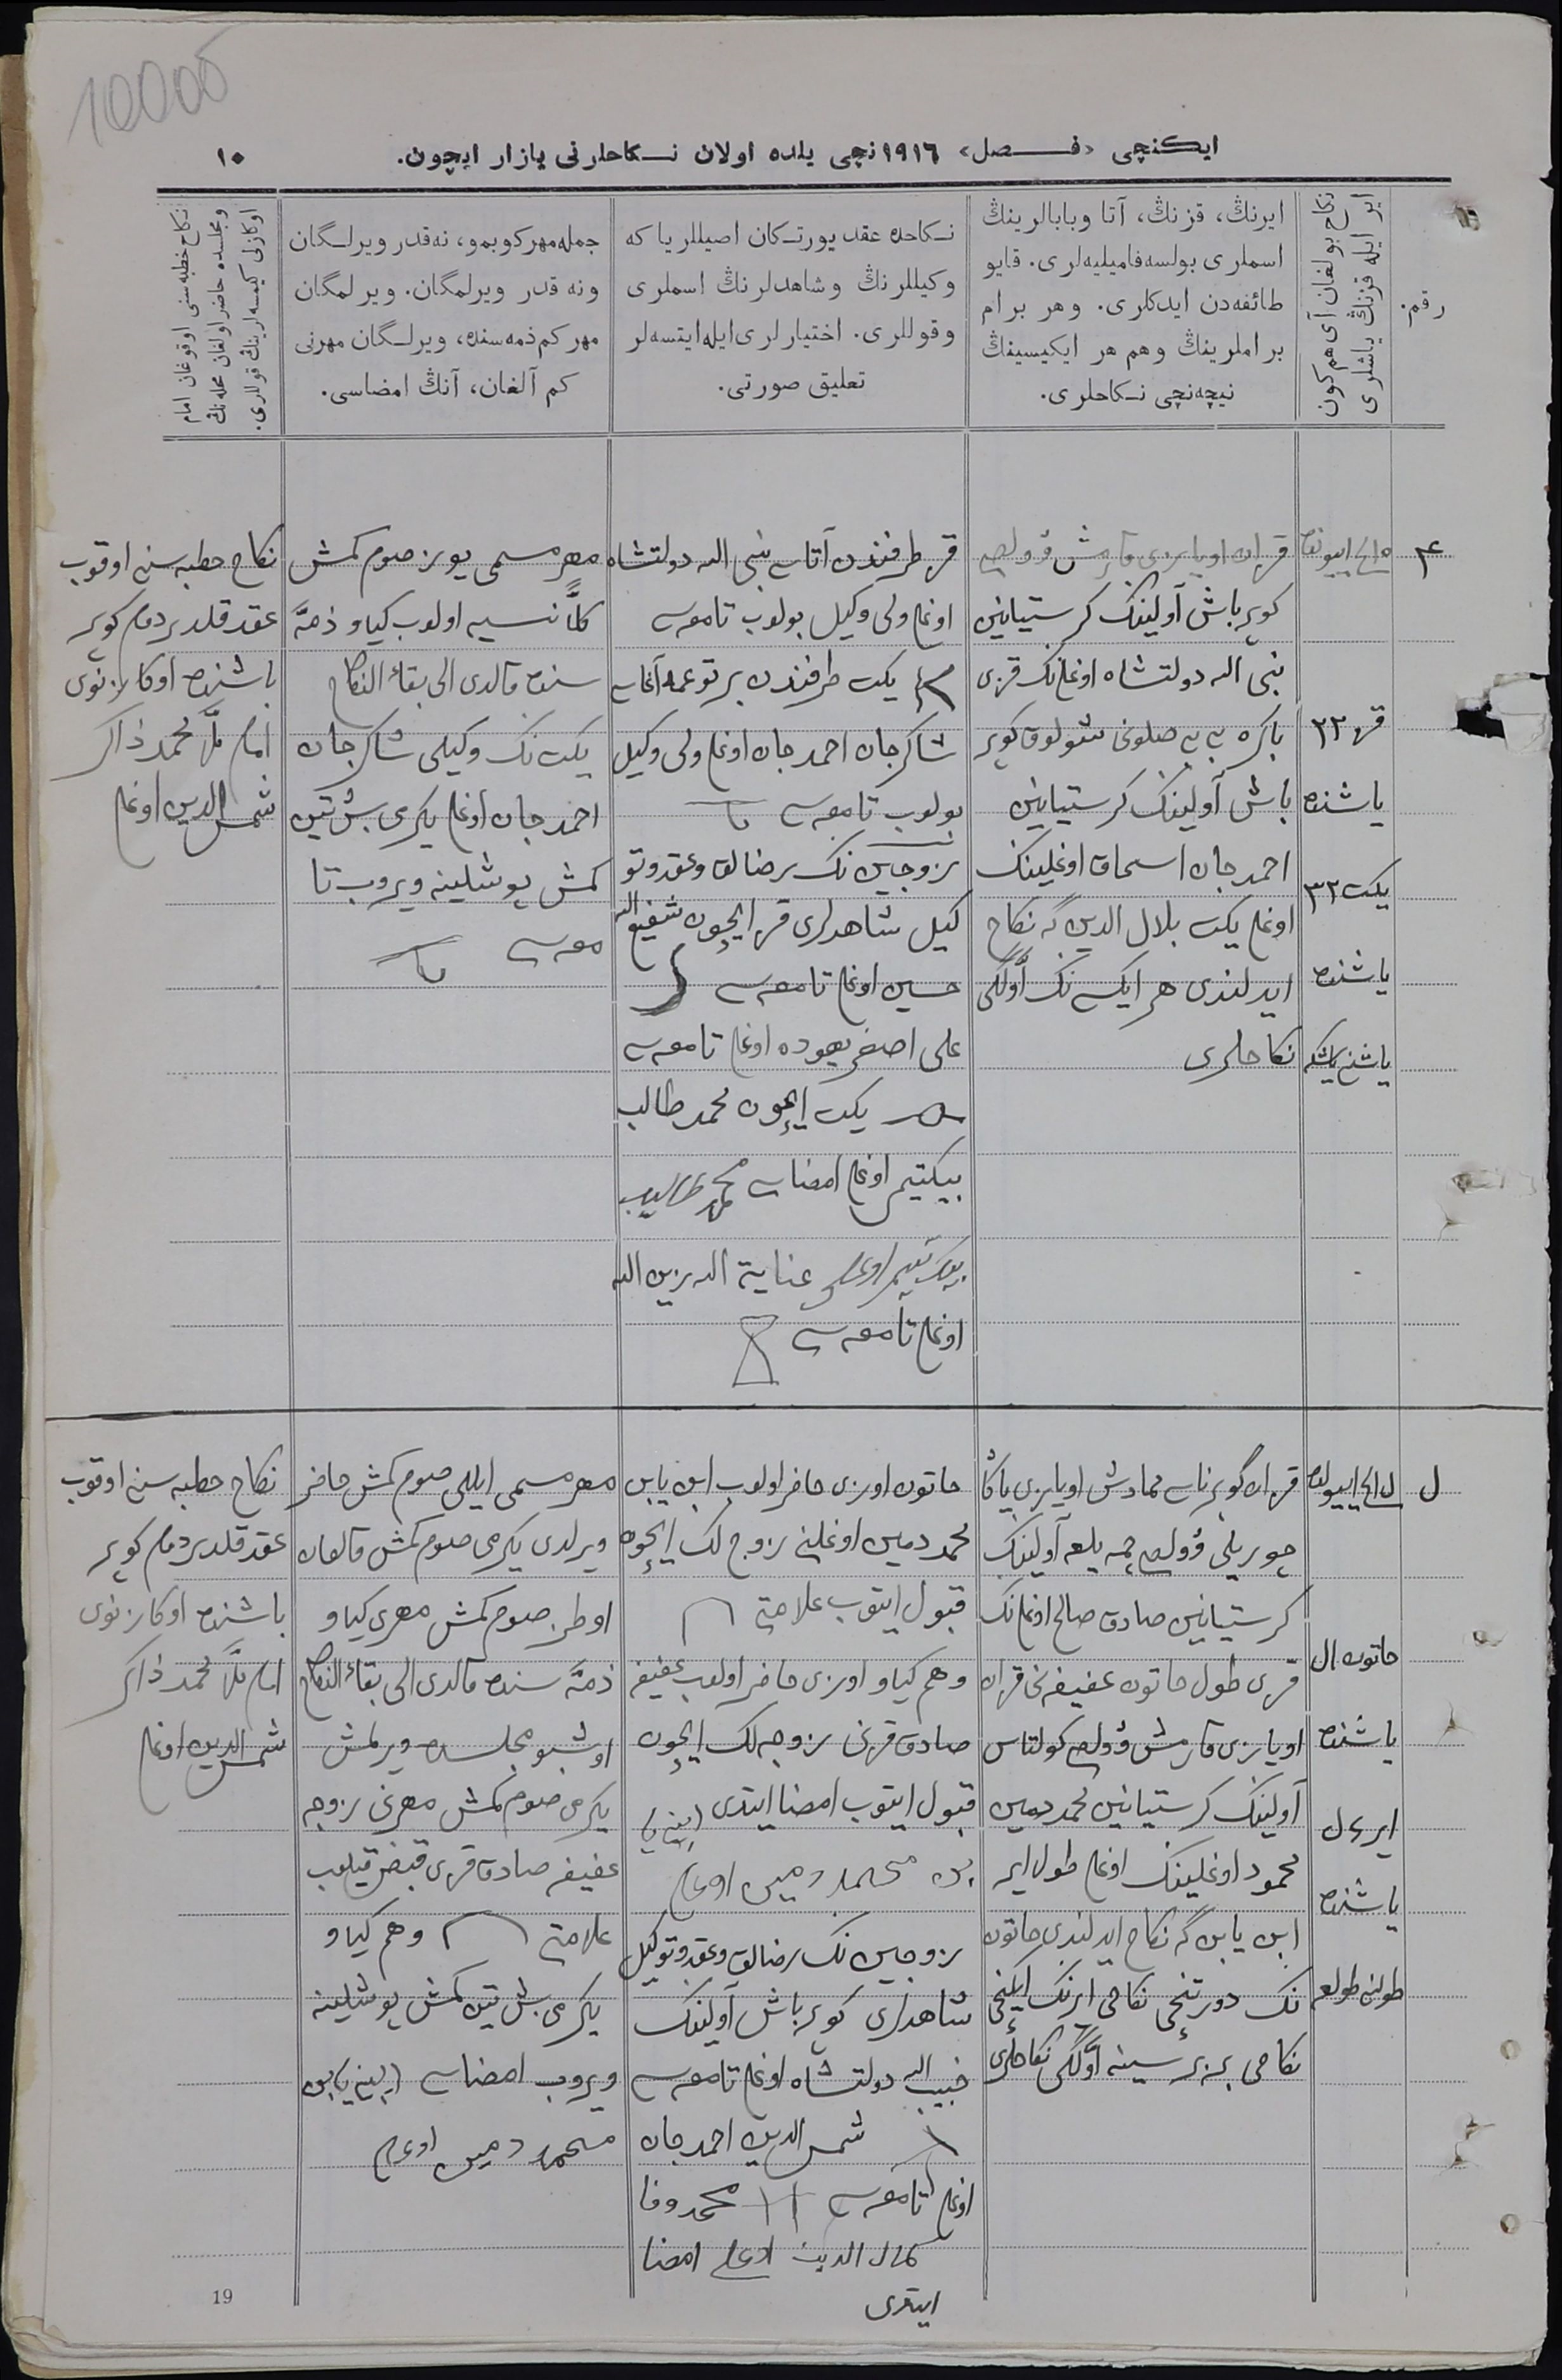 10000
ایکنچی «فـصل» ١٩١٦ نچی یلده اولان نـکاحلرنی یازار ایچون.
١٠
رقم.
نکاح بولغان آی هم کون
ایر ایله قزنڭ یاشلری
ایرنڭ، قزنڭ، آتا وبابالرینڭ
اسملری بولسه فامیلیه‌لری. قایو
طائفه‌دن ایدکلری. وهر برام
براملرینڭ وهم هر ایکیسینڭ
نیچه‌نچی نـکاحلری.
نـکاحده عقد یورتـکان اصیللر یا که
وکیللرنڭ وشاهدلرنڭ اسملری
وقوللری. اختیارلری ایله ایتسه‌لر
تعلیق صورتی.
جمله مهر کوبمو، نه‌قدر ویرلـگان
ونه قدر ویرلمگان. ویرلمگان
مهر کم ذمه‌سنده، ویرلـگان مهرنی
کم آلغان، آنڭ امضاسی.
نکاح خطبه‌سنی اوقوغان امام
ومجلسده حاضر اولغان محله‌نڭ
اوکازلی کیمسه‌لرینڭ قوللری.
٤
قز ٢٢
یاشنده
یکت ٣٢
یاشنده
کویر باش آولینڭ کرستیانین
نبی الله دولتشاه اوغلی‌نڭ قزی
باکره
باش آولینڭ کرستیانین
احمدجان اسحاق اوغلینڭ
اوغلی یکت بلال الدین گه نکاح
ایدلندی هر ایکسی نڭ اوّلگی
نکاحلری
قز طرفندن آتاسی نبی الله دولتشاه
اوغلی ولی وکیل بولوب تامغه‌سی
یکت طرفندن بر توغمه آغاسی
شاکرجان احمدجان اوغلی ولی وکیل
بولوب تامغه‌سی
زوجین نڭ رضالق وعقد وتو
کیل شاهدلری قز ایچون شفیع الله
حسین اوغلی تامغه‌سی
علی اصغر یهوده اوغلی تامغه‌سی
یکت ایچون محمد طالب
بیکتیمر اوغلی امضاسی محمد طالب
بیکتیمر اوغلی عنایة الله زین الله
اوغلی تامغه‌سی
مهر مسمی یوز صوم کمش
کلاًّ نسیه اولوب کیاو ذمّه
سنده قالدی الی بقاء النکاح
یکت نڭ وکیلی شاکرجان
احمدجان اوغلی یکرمی بش تین
کمش پوشلینه ویروب تا
مغه‌سی
نکاح خطبه سنی اوقوب
عقد قلدیردم کویر
باشنده اوکازنوی
امام ملّا محمد ذاکر
شمس الدین اوغلی
خاتون
یاشنده
ایر
یاشنده
کرستیانین صادق صالح اوغلی نڭ
قزی طول خاتون عفیفه نی قزان
آولینڭ کرستیانین محمد دمین
محمود اوغلینڭ اوغلی طول ایر
ابن یابن گه نکاح ایدلندی خاتون
نڭ دورتنچی نکاحی ایرنڭ ایکنچی
نکاحی بربرسینه اوّلگی نکاحلری
خاتون اوزی حاضر اولوب ابن یابن
محمد دمین اوغلینی زوج لک ایچون
قبول ایتوب علامتی
وهم کیاو اوزی حاضر اولوب عفیفه
صادق قزنی زوجه لک ایچون
قبول ایتوب امضا ایتدی
محمد دمین اوغلی
زوجین نڭ رضالق وعقد وتوکیل
شاهدلری کویر باش آولینڭ
حبیب الله دولتشاه اوغلی تامغه‌سی
شمس الدین احمدجان
اوغلی تامغه‌سی محمد وفا
کمال الدین اوغلی امضا
ایتدی
مهر مسمی ایللی صوم کمش حاضر
ویرلدی یکرمی صوم کمش قالغان
اوطز صوم کمش مهری کیاو
ذمّه سنده قالدی الی بقاء النکاح
اوشبو مجلسده ویرلمش
یکرمی صوم کمش مهرنی زوجه
عفیفه صادق قزی قبض قیلوب
علامتی وهم کیاو
یکرمی بش تین کمش پوشلینه
ویروب امضاسی
محمد دمین اوغلی
نکاح خطبه سنی اوقوب
عقد قلدیردم کویر
باشنده اوکازنوی
امام ملّا محمد ذاکر
شمس الدین اوغلی
19